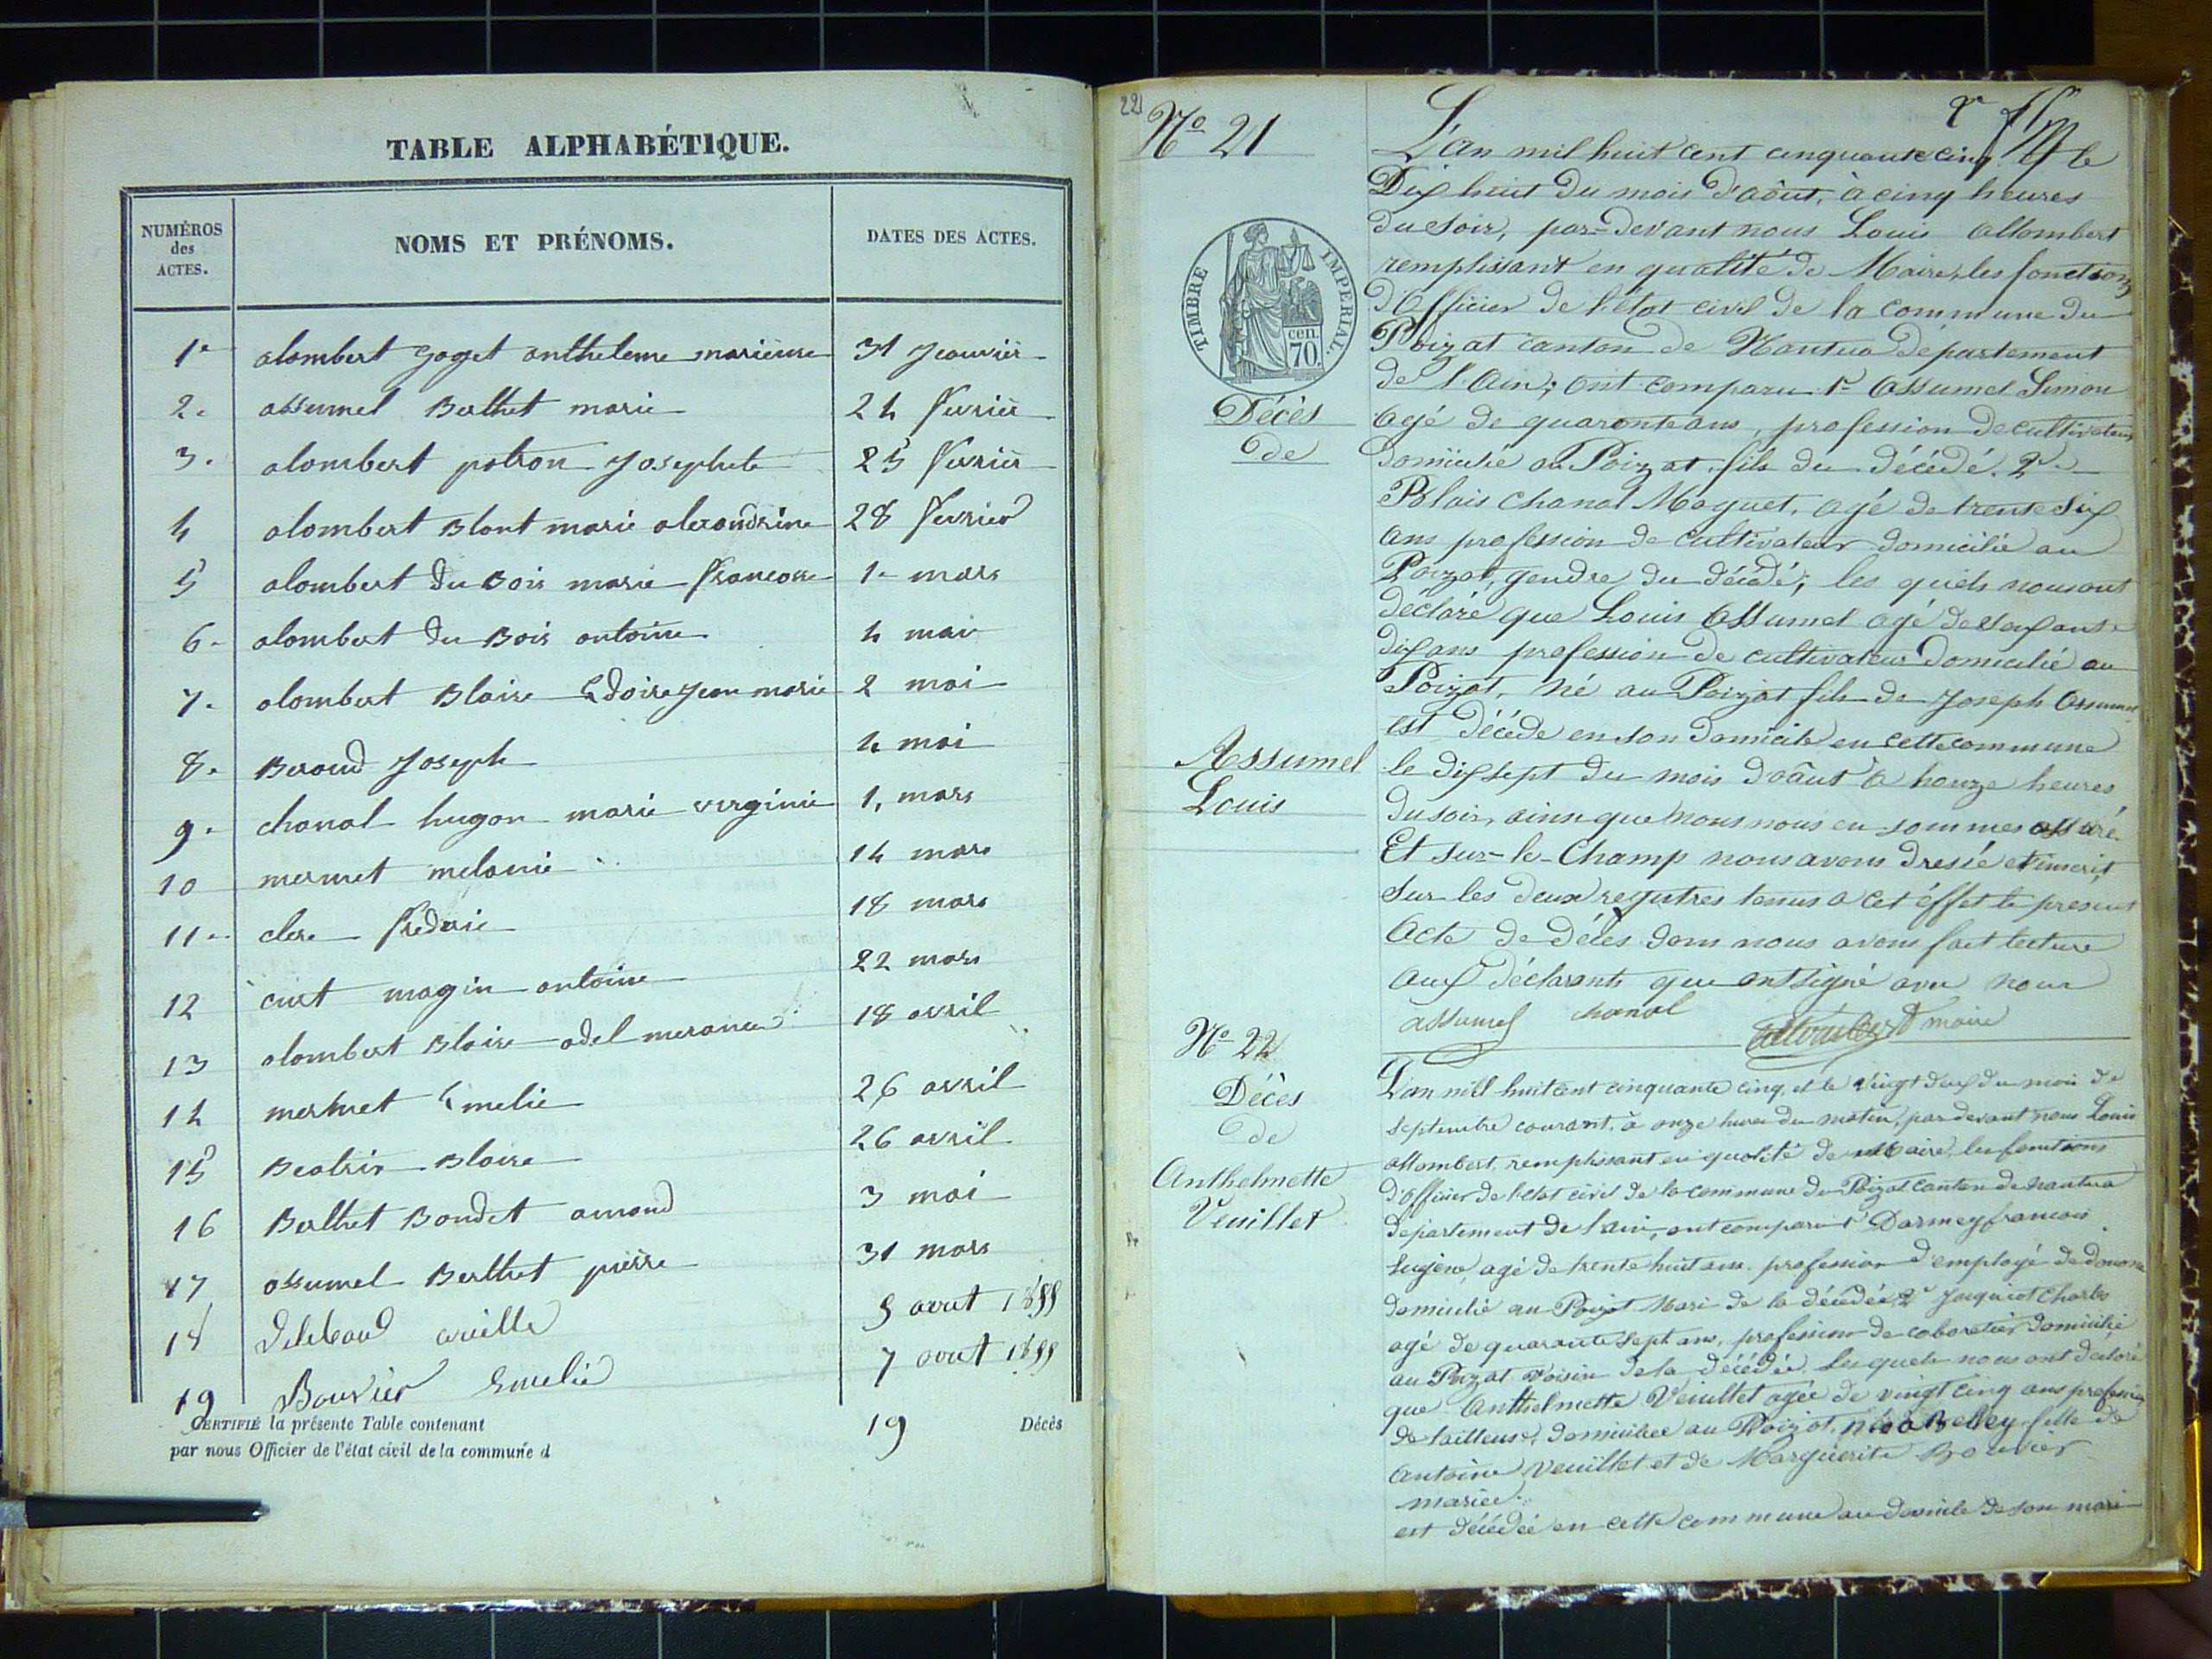 TABLE ALPHABÉTIQUE.
NUMÉROS des ACTES.
NOMS ET PRÉNOMS.
DATES DES ACTES.
1e alombert goget antheleme marieuse 31 Jeanvièr
2. assumel Berthet marie 24 fevrièr
3. alombert potron Josephete 25 fevrièr
4 alombert Blont marie alexandrine 28 fevrier
5 alombert du Bois marie francoise 1e mars
6. alombert du Bois antoine 4 mai
7. alombert Blaise Jean marie 2 mai
8. Beroud Joseph 4 mai
9. chanal hugon marie virginie 1. mars
10 mermet melanie 14 mars
11. clere frederic 18 mars
12 curt magin antoine 22 mars
13 alombert Blaise adel 18 avril
14 mermet Emelie 26 avril
15 Beatrix Blaise 26 avril
16 Berthet Bondet amand 3 mai
17 assumel Berthet pièrre 31 mars
18 5 aout 1855
19 Bouvièr Emelie 7 aout 1855
CERTIFIÉ la présente Table contenant 19 Décès
par nous Officier de l'état civil de la commune d
221
No 21
TIMBRE IMPÉRIAL.
cen. 70.
Décès
de
Assumel
Louis
L'an mil huit cent cinquante cinq le
Dix huit du mois d'aôut, à cinq heures
du soir, par-devant nous Louis Allombert
remplissant en qualité de Maire, les fonctions
d'Officier de l'état civil de la commune du
Poizat canton de Nantua département
de l'Ain; ont comparu 1° Assumel Simon
agé de quarante ans, profession de cultivateur
domicilié au Poizat, fils du décédé. 2°
Blais Chanal Moguet, agé de trente six
ans profession de cultivateur domicilié au
Poizat, gendre du décédé; les quels nous ont
déclaré que Louis Assumel agé de soixante
dix ans profession de cultivateur domicilié au
Poizat, né au Poizat fils de Joseph Assumel
est décédé en son domicile en cette commune
le dix sept du mois d'aôut à honze heures
du soir, ainsi que nous nous en sommes assuré.
Et sur-le-Champ nous avons dressé et inscrit
sur les deux registres tenus a cet éffet le present
Acte de décès dont nous avons fait lecture
aux déclarants qui ont signé avec nous
assumel chanal allombert maire
No 22
Décès
de
Anthelmette
Veuillet
L'an mill huit cent cinquante cinq, et le vingt deux du mois de
septembre courant, à onze heures du matin, par devant nous Louis
allombert, remplissant en qualité de maire, les fonctions
d'officier de l'état civil de la commune du Poizat canton de nantua
département de l'ain, ont comparu 1° Darmey francois
Eugène, agé de trente huit ans, profession d'employé de douane
domicilié au Poizat Mari de la décédée, 2° Jacquiot Charles
agé de quarante sept ans, profession de cabaretier domicilié
au Poizat voisin de la décédée, lesquels nous ont déclaré
que Anthelmette Veuillet agée de vingt cinq ans profession
de tailleuse, domiciliée au Poizat, née à Belley fille de
Antoine Veuillet et de Marguerite Bouvier
mariée.
est décédée en cette commune au domicile de son mari